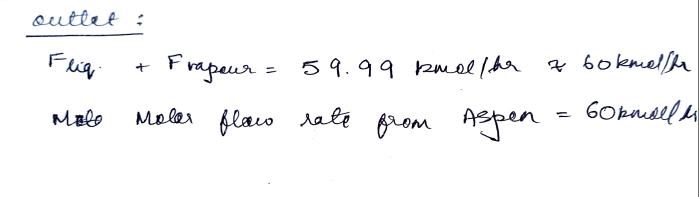 outlet :
Fliq. + Fvapeur = 59.99 kmol/hr ≈ 60kmol/hr
Molar flow rate from Aspen = 60kmol/hr